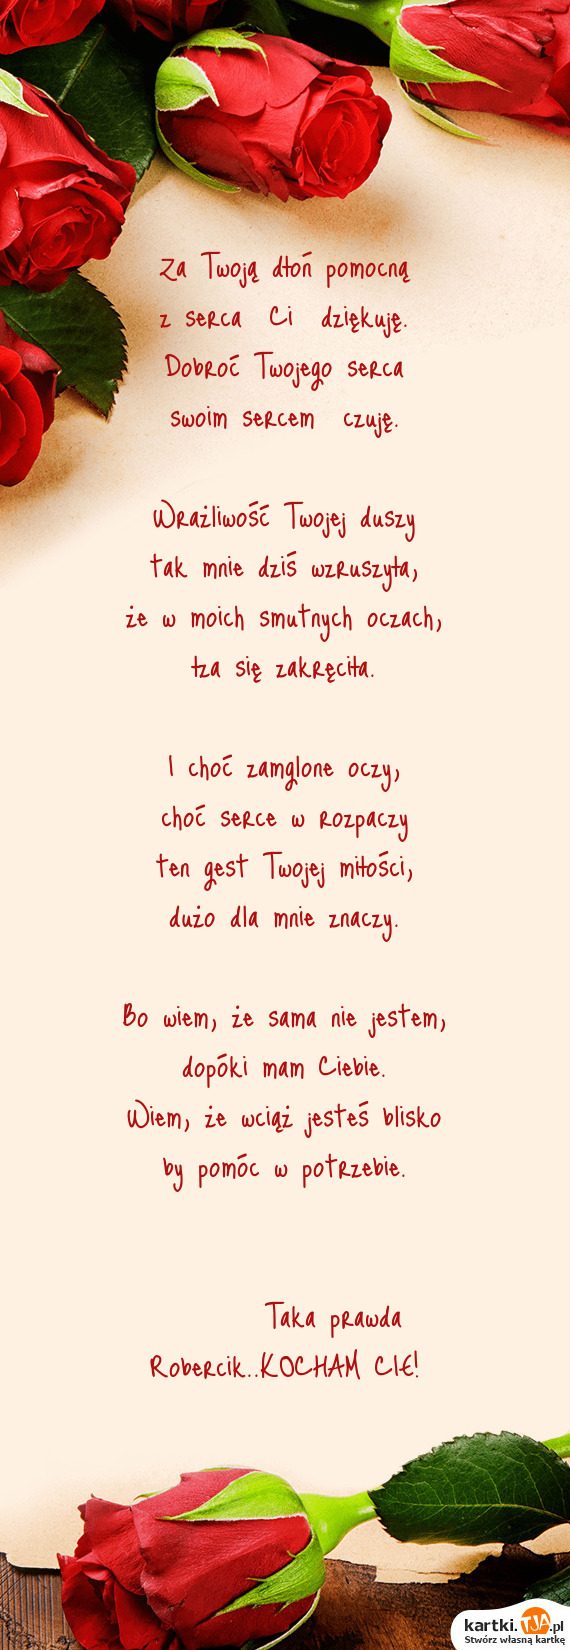 Za Twoją dłoń pomocną
z serca Ci dziękuję.
Dobroć Twojego serca
swoim sercem czuję.
Wrażliwość Twojej duszy
tak mnie dziś wzruszyła,
że w moich smutnych oczach,
łza się zakręciła.
I choć zamglone oczy,
choć serce w rozpaczy
ten gest Twojej miłości,
dużo dla mnie znaczy.
Bo wiem, że sama nie jestem,
dopóki mam Ciebie.
Wiem, że wciąż jesteś blisko
by pomóc w potrzebie.
Taka prawda
Robercik..KOCHAM CIE!
kartki.TJA.pl
Stwórz własną kartkę